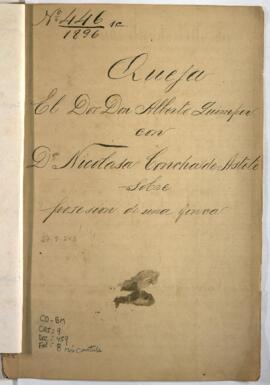 Nº 446
1896
Queja
El Dor Don Alberto
con
Dª Nicolasa Concha de Astete
sobre
posesion de una finca
CO-BM
CAJ: 9
Doc: 459
Fol: 8